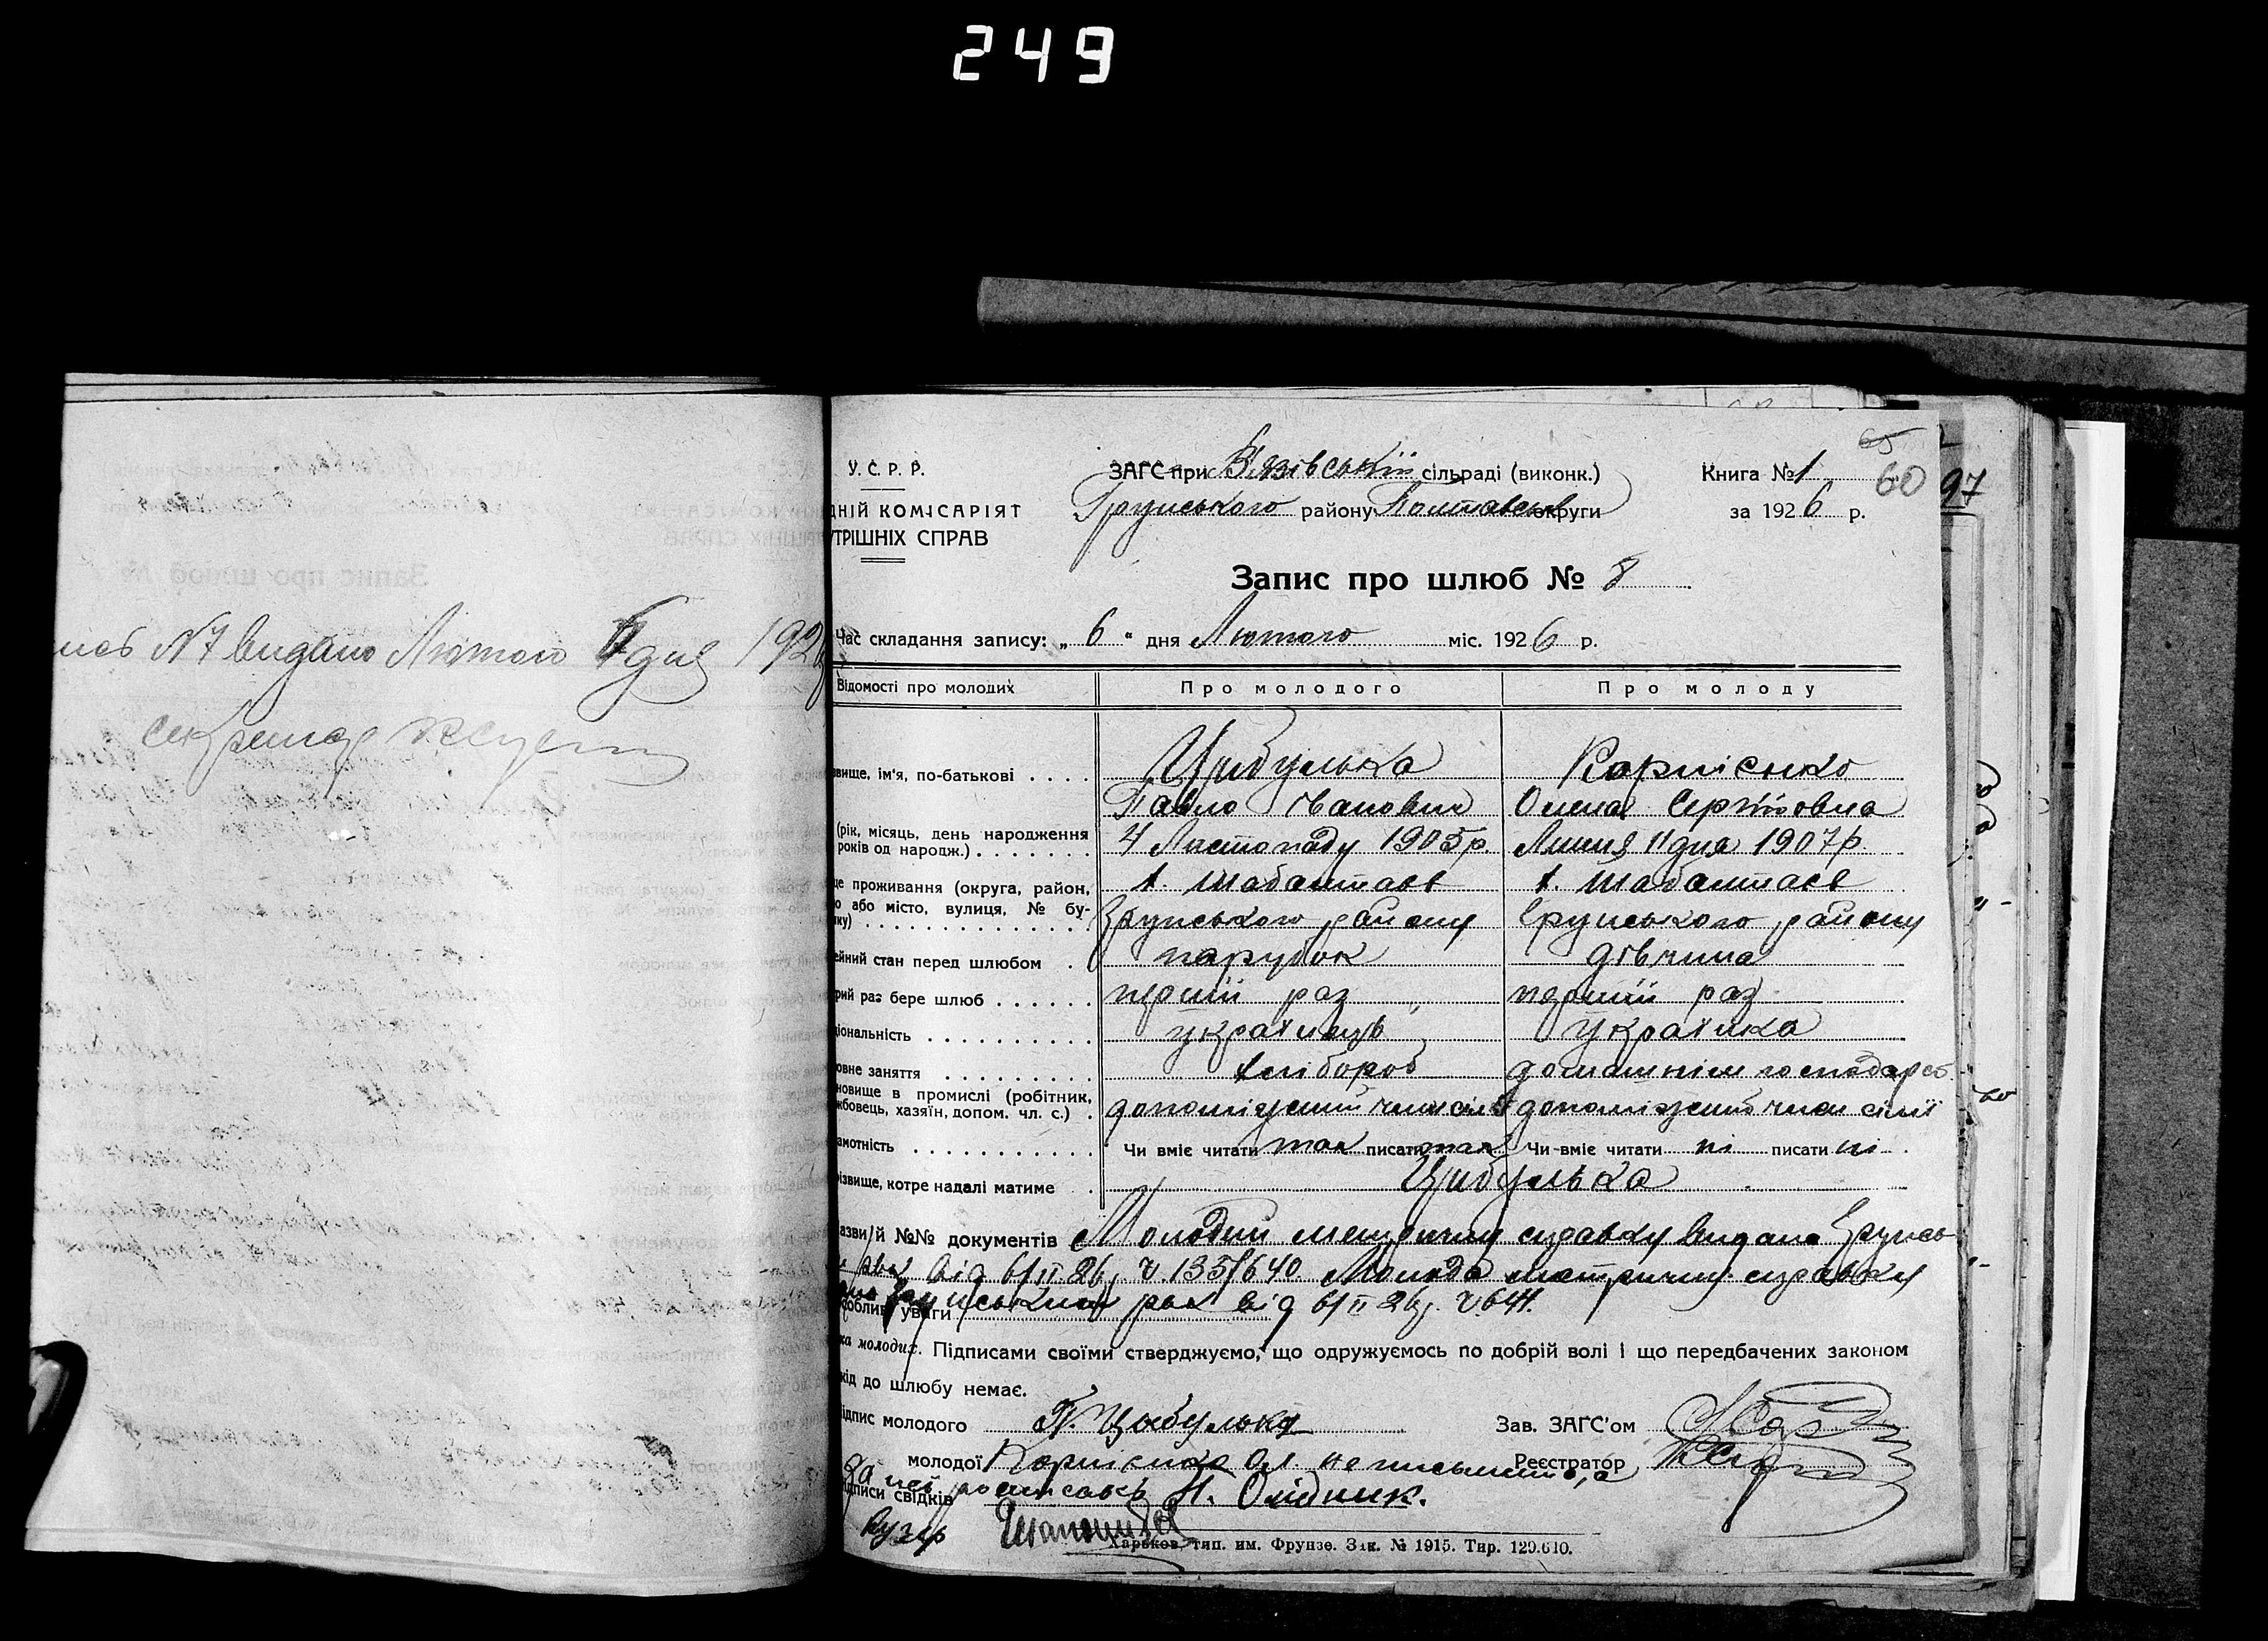 249
N7 видано Лютого 6 дня 192
секретар
65
60 97
У.С.Р.Р.
ДНІЙ КОМІСАРІЯТ
УТРІШНІХ СПРАВ
ЗАГС при Вязівській сільраді (виконк.)
Грунського району Полтавськ округи
Книга № 1
за 1926 р.
Запис про шлюб № 8
Час складання запису: „ 6 “ дня Лютого міс. 1926 р.
Відомості про молодих Про молодого Про молоду
звище, ім'я, по-батькові . . . . Цибулька Корнієнко
Павло Іванович Олена Сергіівна
(рік, місяць, день народження 4 Листопаду 1905 р. Липня 11 дня 1907 р.
років од народж.) . . . . . . .
це проживання (округа, район, х. Шабалтаєв х. Шабалтаєв
о або місто, вулиця, № бу- Грунського району Грунського району
нку) . . . . . . . . . . . .
ейний стан перед шлюбом . парубок дівчина
рий раз бере шлюб . . . . . . перший раз перший раз
ціональність . . . . . . . . . . українець українка
овне заняття . . . . . . . . . хлібороб домашнім господарст
новище в промислі (робітник,
жбовець, хазяїн, допом. чл. с.) . допоміжний член сім'ї допоміжний член сімії
амотність . . . . . . . . . . . Чи вміє читати так писати так Чи вміє читати ні писати ні
ізвище, котре надалі матиме . Цибулька
азви й №№ документів Молодий метричну справку видана Грунсь
рвк від 6/II 26 р. ч 135/640. Молода метричну справку
Грунським рвк від 6/II 26 р. ч 641.
соблив уваги
ка молодих. Підписами своїми стверджуємо, що одружуємось по добрій волі і що передбачених законом
кід до шлюбу немає.
ідпис молодого П. Цыбулька Зав. ЗАГС'ом
молодої Корнієнко Ол неписьменна, а Реєстратор
за неї росписавь Н. Олійник.
ідписи свідків
Харьков, тип. им. Фрунзе. Зак. № 1915. Тир. 129.610.